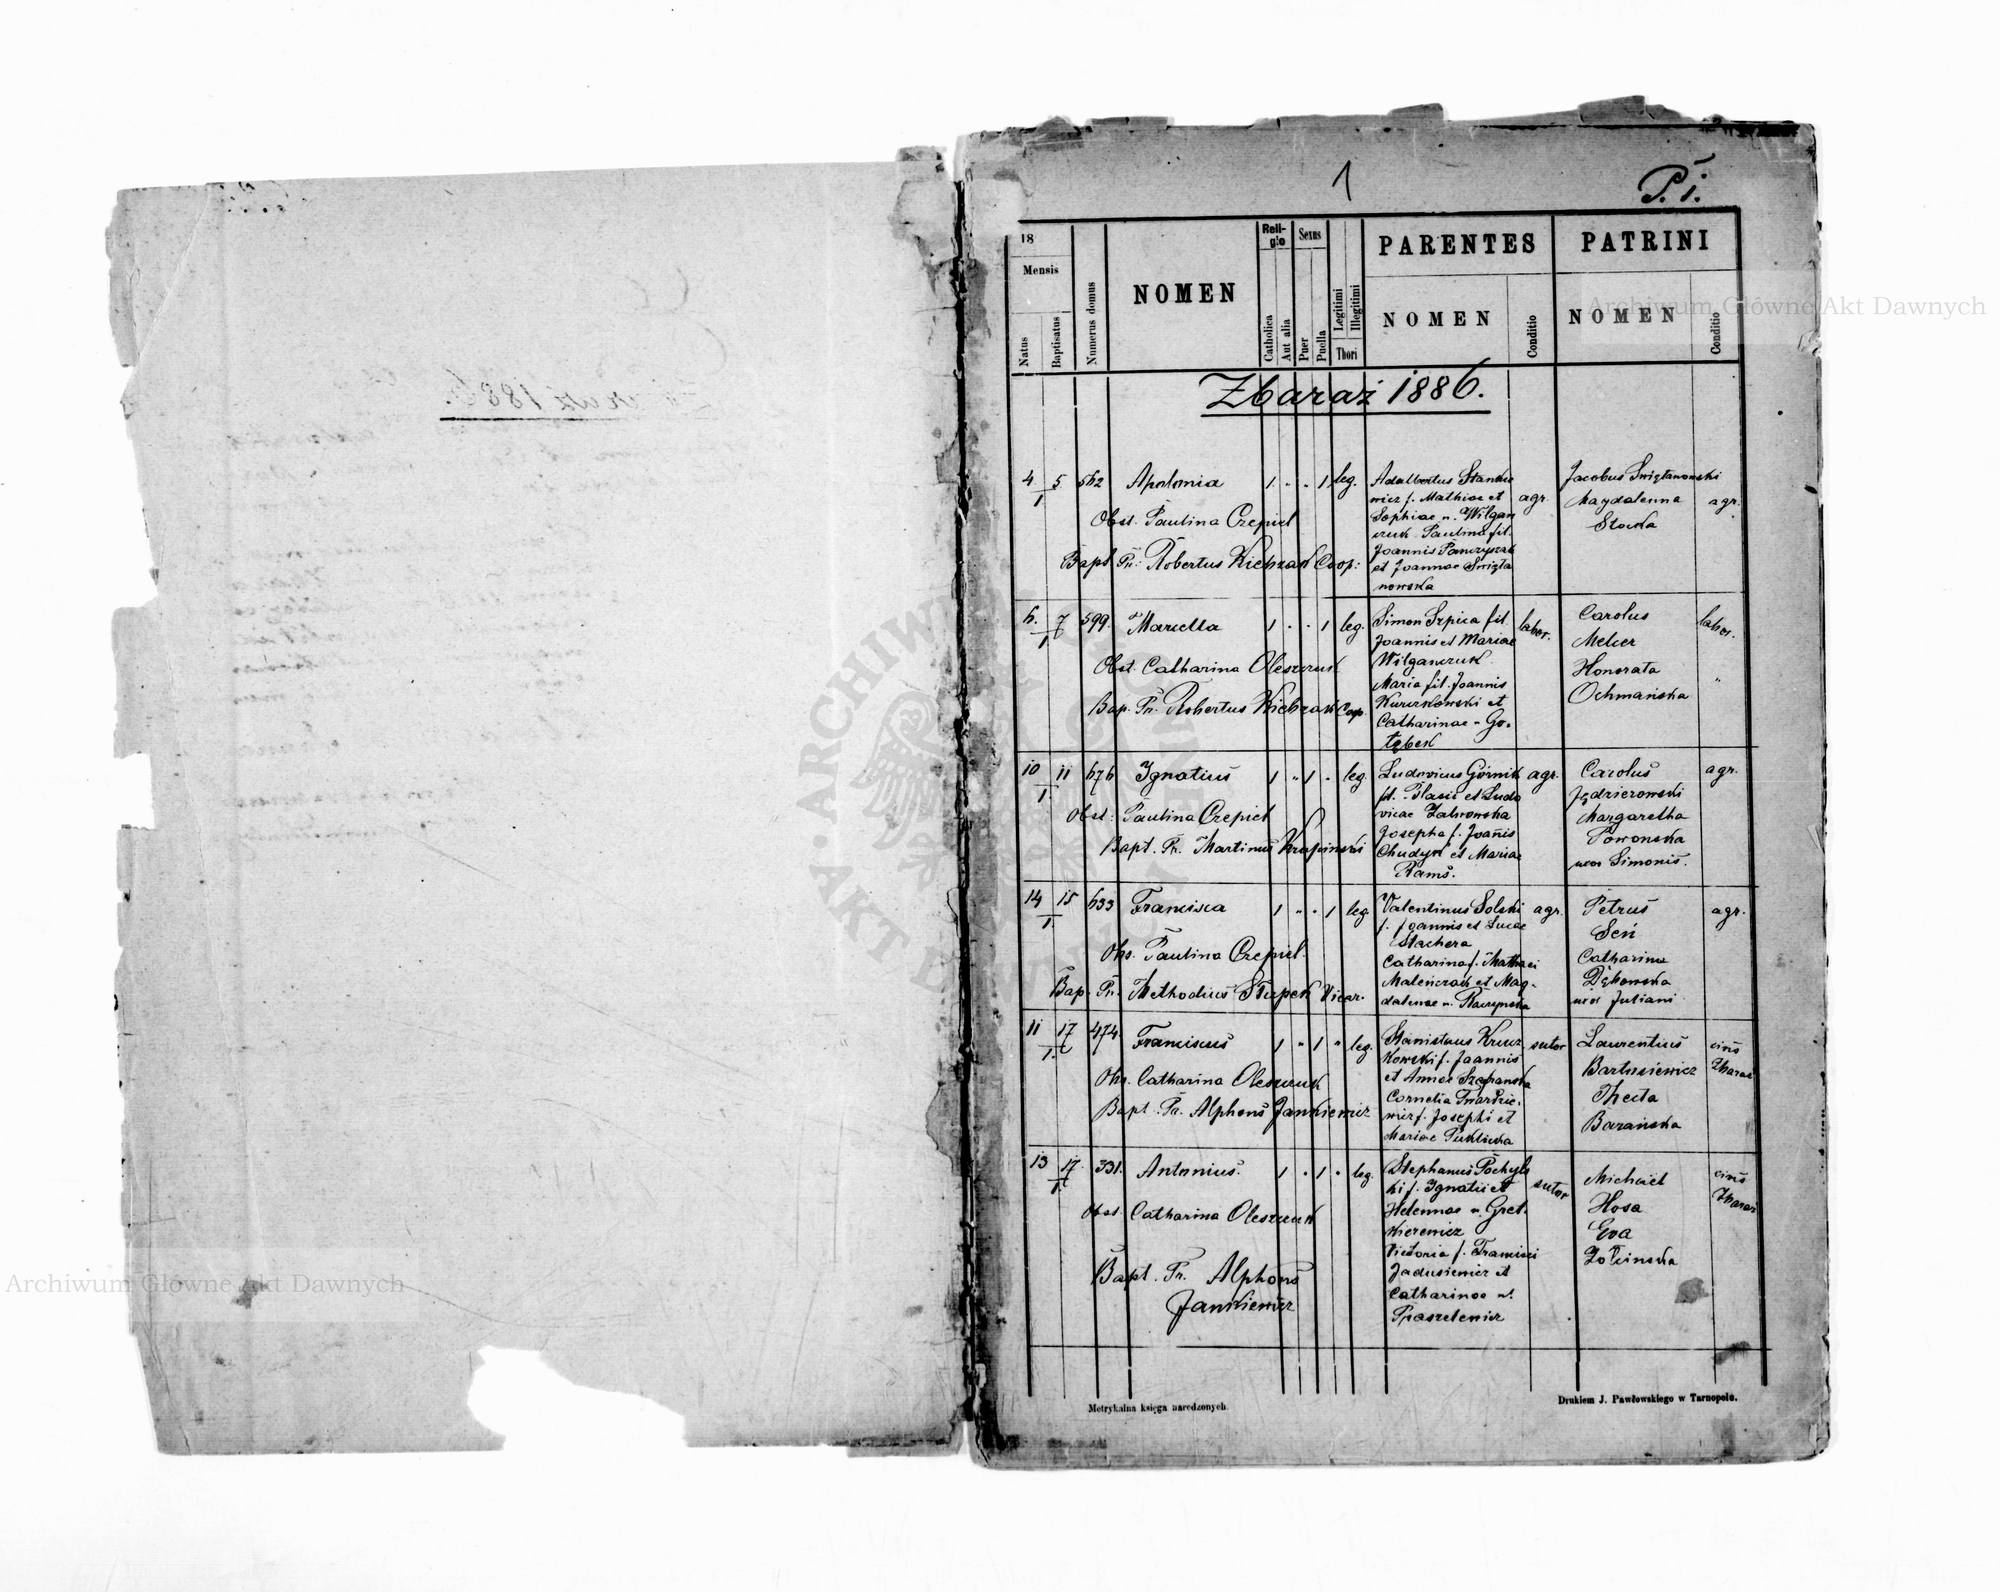 1
P. i.
18
Mensis
Natus
Baptisatus
Numerus domus
NOMEN
Religio
Catholica
Aut alia
Sexus
Puer
Puella
Legitimi
Illegitimi
Thori
PARENTES
NOMEN
Conditio
PATRINI
NOMEN
Conditio
Zbaraż 1886.
4 5 562 Apolonia 1 " " 1 leg.
I
Obst. Paulina Czepiel
Bapt. Pr. Robertus Kichzak Coop:
Adalbertus Stankie
wicz f. Mathiae et
Sophiae n. Wilgan
czuk Paulina fil.
Joannis Panczyszak
et Joannae Swięta
nowska
agr.
Jacobus Swiętanowski
Magdalenna
Stocka
agr.
6. 7 599. Marcella 1 " " 1 leg.
I
Obst. Catharina Oleszczuk
Bap. Pr. Robertus Kichzak Coop.
Simon Szpica fil.
Joannis et Mariae
Wilganczuk
Maria fil. Joannis
Kurzkowski et
Catharinae n Go-
łąbek
labor.
Carolus
Melcer
Honorata
Ochmańska
labor.
"
10 11 676 Ignatius 1 " 1 " leg.
I
Obst: Paulina Czepiel
Bapt. Pr. Martinus Krupinski
Ludovicus Górnik
fil. Blasii et Ludo
vicae Zalwowska
Josepha f. Joañis
Chudyk et Mariae
Rams.
agr.
Carolus
Jędrzerowski
Margaretha
Powonska
uxor Simonis.
agr.
14 15 633 Francisca 1 " " 1 leg.
I
Obs. Paulina Czepiel.
Bap. Pr. Methodius Słupek Vicar.
Valentinus Solski
f. Joannis et Lucae
Stachera
Catharina f. Mathaei
Maleńczak et Mag-
dalenae n. Raczynska
agr.
Petrus
Seń
Catharina
Dękowska
uxor Juliani
agr.
11 17 474 Franciscus 1 " 1 " leg.
I
Obs. Catharina Oleszczuk
Bapt. Pr. Alphons Jankiewicz
Stanislaus Krucz
kowski f. Joannis
et Annae Szafranska
Cornelia Twardzie-
wicz f. Josephi et
Mariae Puklicka
sutor
Laurentius
Bartusiewicz
Thecla
Barańska
civis
Zbaraż
13 17. 331. Antonius. 1 " 1 " leg.
I
Obst. Catharina Oleszczuk
Bapt. Pr. Alphons
Jankiewicz
Stephanus Pochyls
ki f. Ignatii et
Helennae n. Gret-
kierewicz
Victoria f. Francisci
Jadusiewicz et
Catharinae n.
Praszelewicz
sutor
Michael
Hosa
Eva
Żółcinska
civis
Zbaraż
Metrykalna księga narodzonych.
Drukiem J. Pawłowskiego w Tarnopolu.
Archiwum Główne Akt Dawnych
Archiwum Główne Akt Dawnych
ARCHIWUM GŁÓWNE AKT DAWNYCH